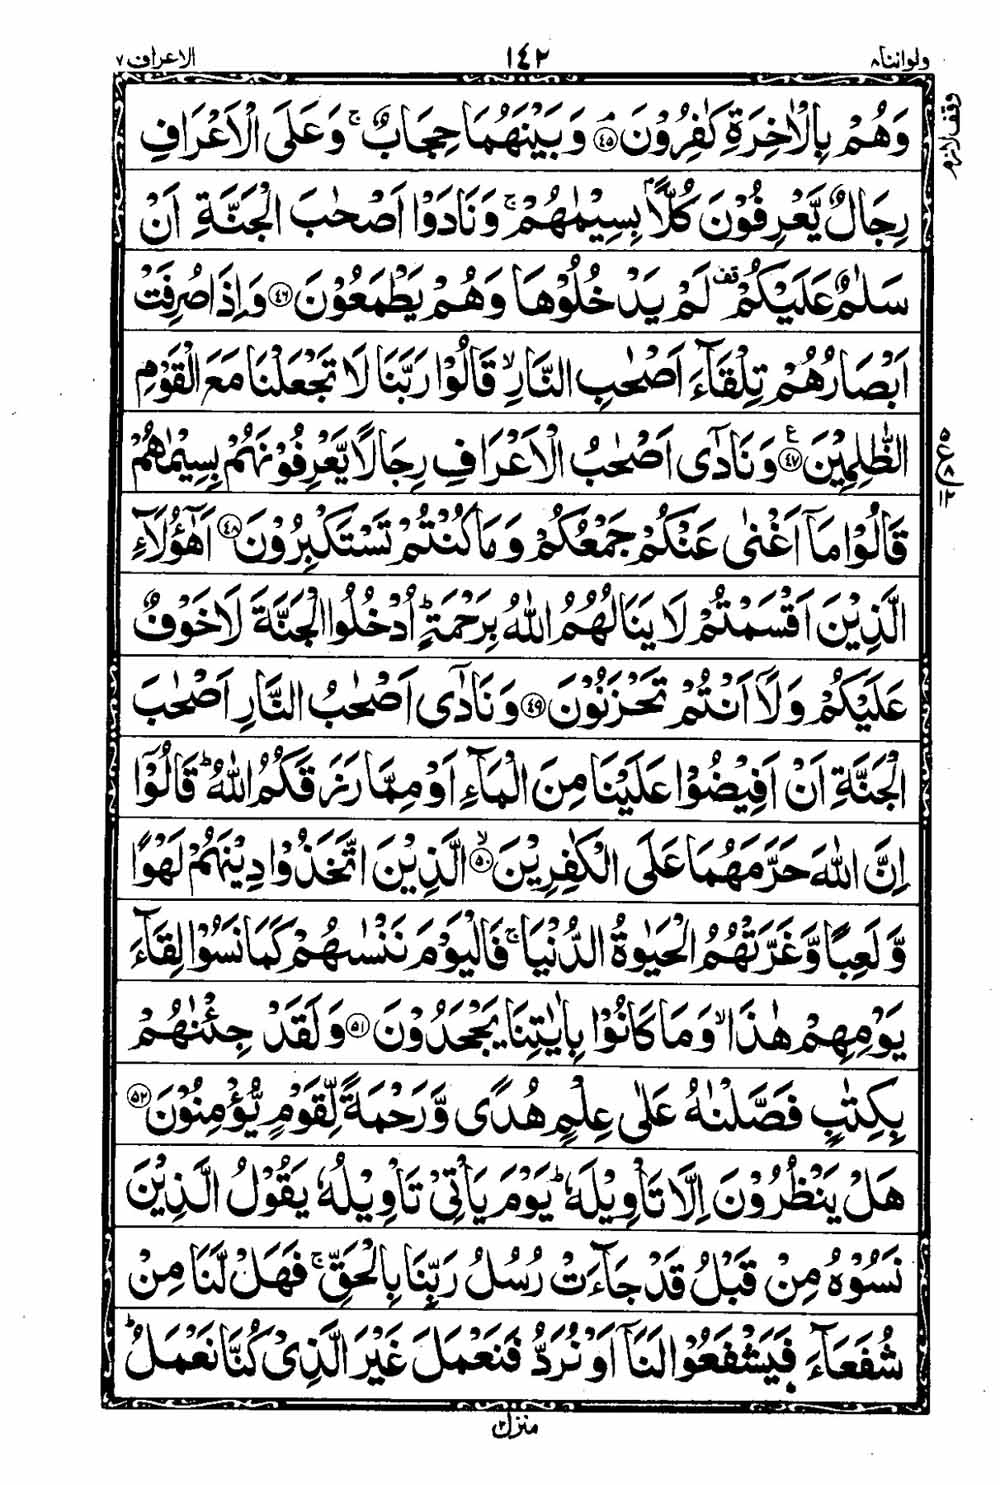 ولواننا ٨ ١٤٢ الاعراف ٧
وَهُمْ بِالْاٰخِرَةِ كٰفِرُوْنَ ۘ ﴿۴۵﴾ وَبَيْنَهُمَا حِجَابٌ ۚ وَعَلَى الْاَعْرَافِ
وقف لازم
رِجَالٌ يَّعْرِفُوْنَ كُلًّاۢ بِسِيْمٰىهُمْ ۚ وَنَادَوْا اَصْحٰبَ الْجَنَّةِ اَنْ
سَلٰمٌ عَلَيْكُمْ ۟قف لَمْ يَدْخُلُوْهَا وَهُمْ يَطْمَعُوْنَ ﴿۴۶﴾ وَاِذَا صُرِفَتْ
اَبْصَارُهُمْ تِلْقَآءَ اَصْحٰبِ النَّارِ ۙ قَالُوْا رَبَّنَا لَا تَجْعَلْنَا مَعَ الْقَوْمِ
الظّٰلِمِيْنَ ﴿۴۷﴾ ع وَنَادٰۤى اَصْحٰبُ الْاَعْرَافِ رِجَالًا يَّعْرِفُوْنَهُمْ بِسِيْمٰىهُمْ
۵ ع ٨ ١٢
قَالُوْا مَاۤ اَغْنٰى عَنْكُمْ جَمْعُكُمْ وَمَا كُنْتُمْ تَسْتَكْبِرُوْنَ ﴿۴۸﴾ اَهٰۤؤُلَآءِ
الَّذِيْنَ اَقْسَمْتُمْ لَا يَنَالُهُمُ اللّٰهُ بِرَحْمَةٍ ؕ اُدْخُلُوا الْجَنَّةَ لَا خَوْفٌ
عَلَيْكُمْ وَلَاۤ اَنْتُمْ تَحْزَنُوْنَ ﴿۴۹﴾ وَنَادٰۤى اَصْحٰبُ النَّارِ اَصْحٰبَ
الْجَنَّةِ اَنْ اَفِيْضُوْا عَلَيْنَا مِنَ الْمَآءِ اَوْ مِمَّا رَزَقَكُمُ اللّٰهُ ؕ قَالُوْۤا
اِنَّ اللّٰهَ حَرَّمَهُمَا عَلَى الْكٰفِرِيْنَ ۙ ﴿۵۰﴾ الَّذِيْنَ اتَّخَذُوْا دِيْنَهُمْ لَهْوًا
وَّلَعِبًا وَّغَرَّتْهُمُ الْحَيٰوةُ الدُّنْيَا ۚ فَالْيَوْمَ نَنْسٰىهُمْ كَمَا نَسُوْا لِقَآءَ
يَوْمِهِمْ هٰذَا ۙ وَمَا كَانُوْا بِاٰيٰتِنَا يَجْحَدُوْنَ ﴿۵۱﴾ وَلَقَدْ جِئْنٰهُمْ
بِكِتٰبٍ فَصَّلْنٰهُ عَلٰى عِلْمٍ هُدًى وَّرَحْمَةً لِّقَوْمٍ يُّؤْمِنُوْنَ ﴿۵۲﴾
هَلْ يَنْظُرُوْنَ اِلَّا تَاْوِيْلَهٗ ؕ يَوْمَ يَاْتِيْ تَاْوِيْلُهٗ يَقُوْلُ الَّذِيْنَ
نَسُوْهُ مِنْ قَبْلُ قَدْ جَآءَتْ رُسُلُ رَبِّنَا بِالْحَقِّ ۚ فَهَلْ لَّنَا مِنْ
شُفَعَآءَ فَيَشْفَعُوْا لَنَاۤ اَوْ نُرَدُّ فَنَعْمَلَ غَيْرَ الَّذِيْ كُنَّا نَعْمَلُ ؕ
منزل ٢